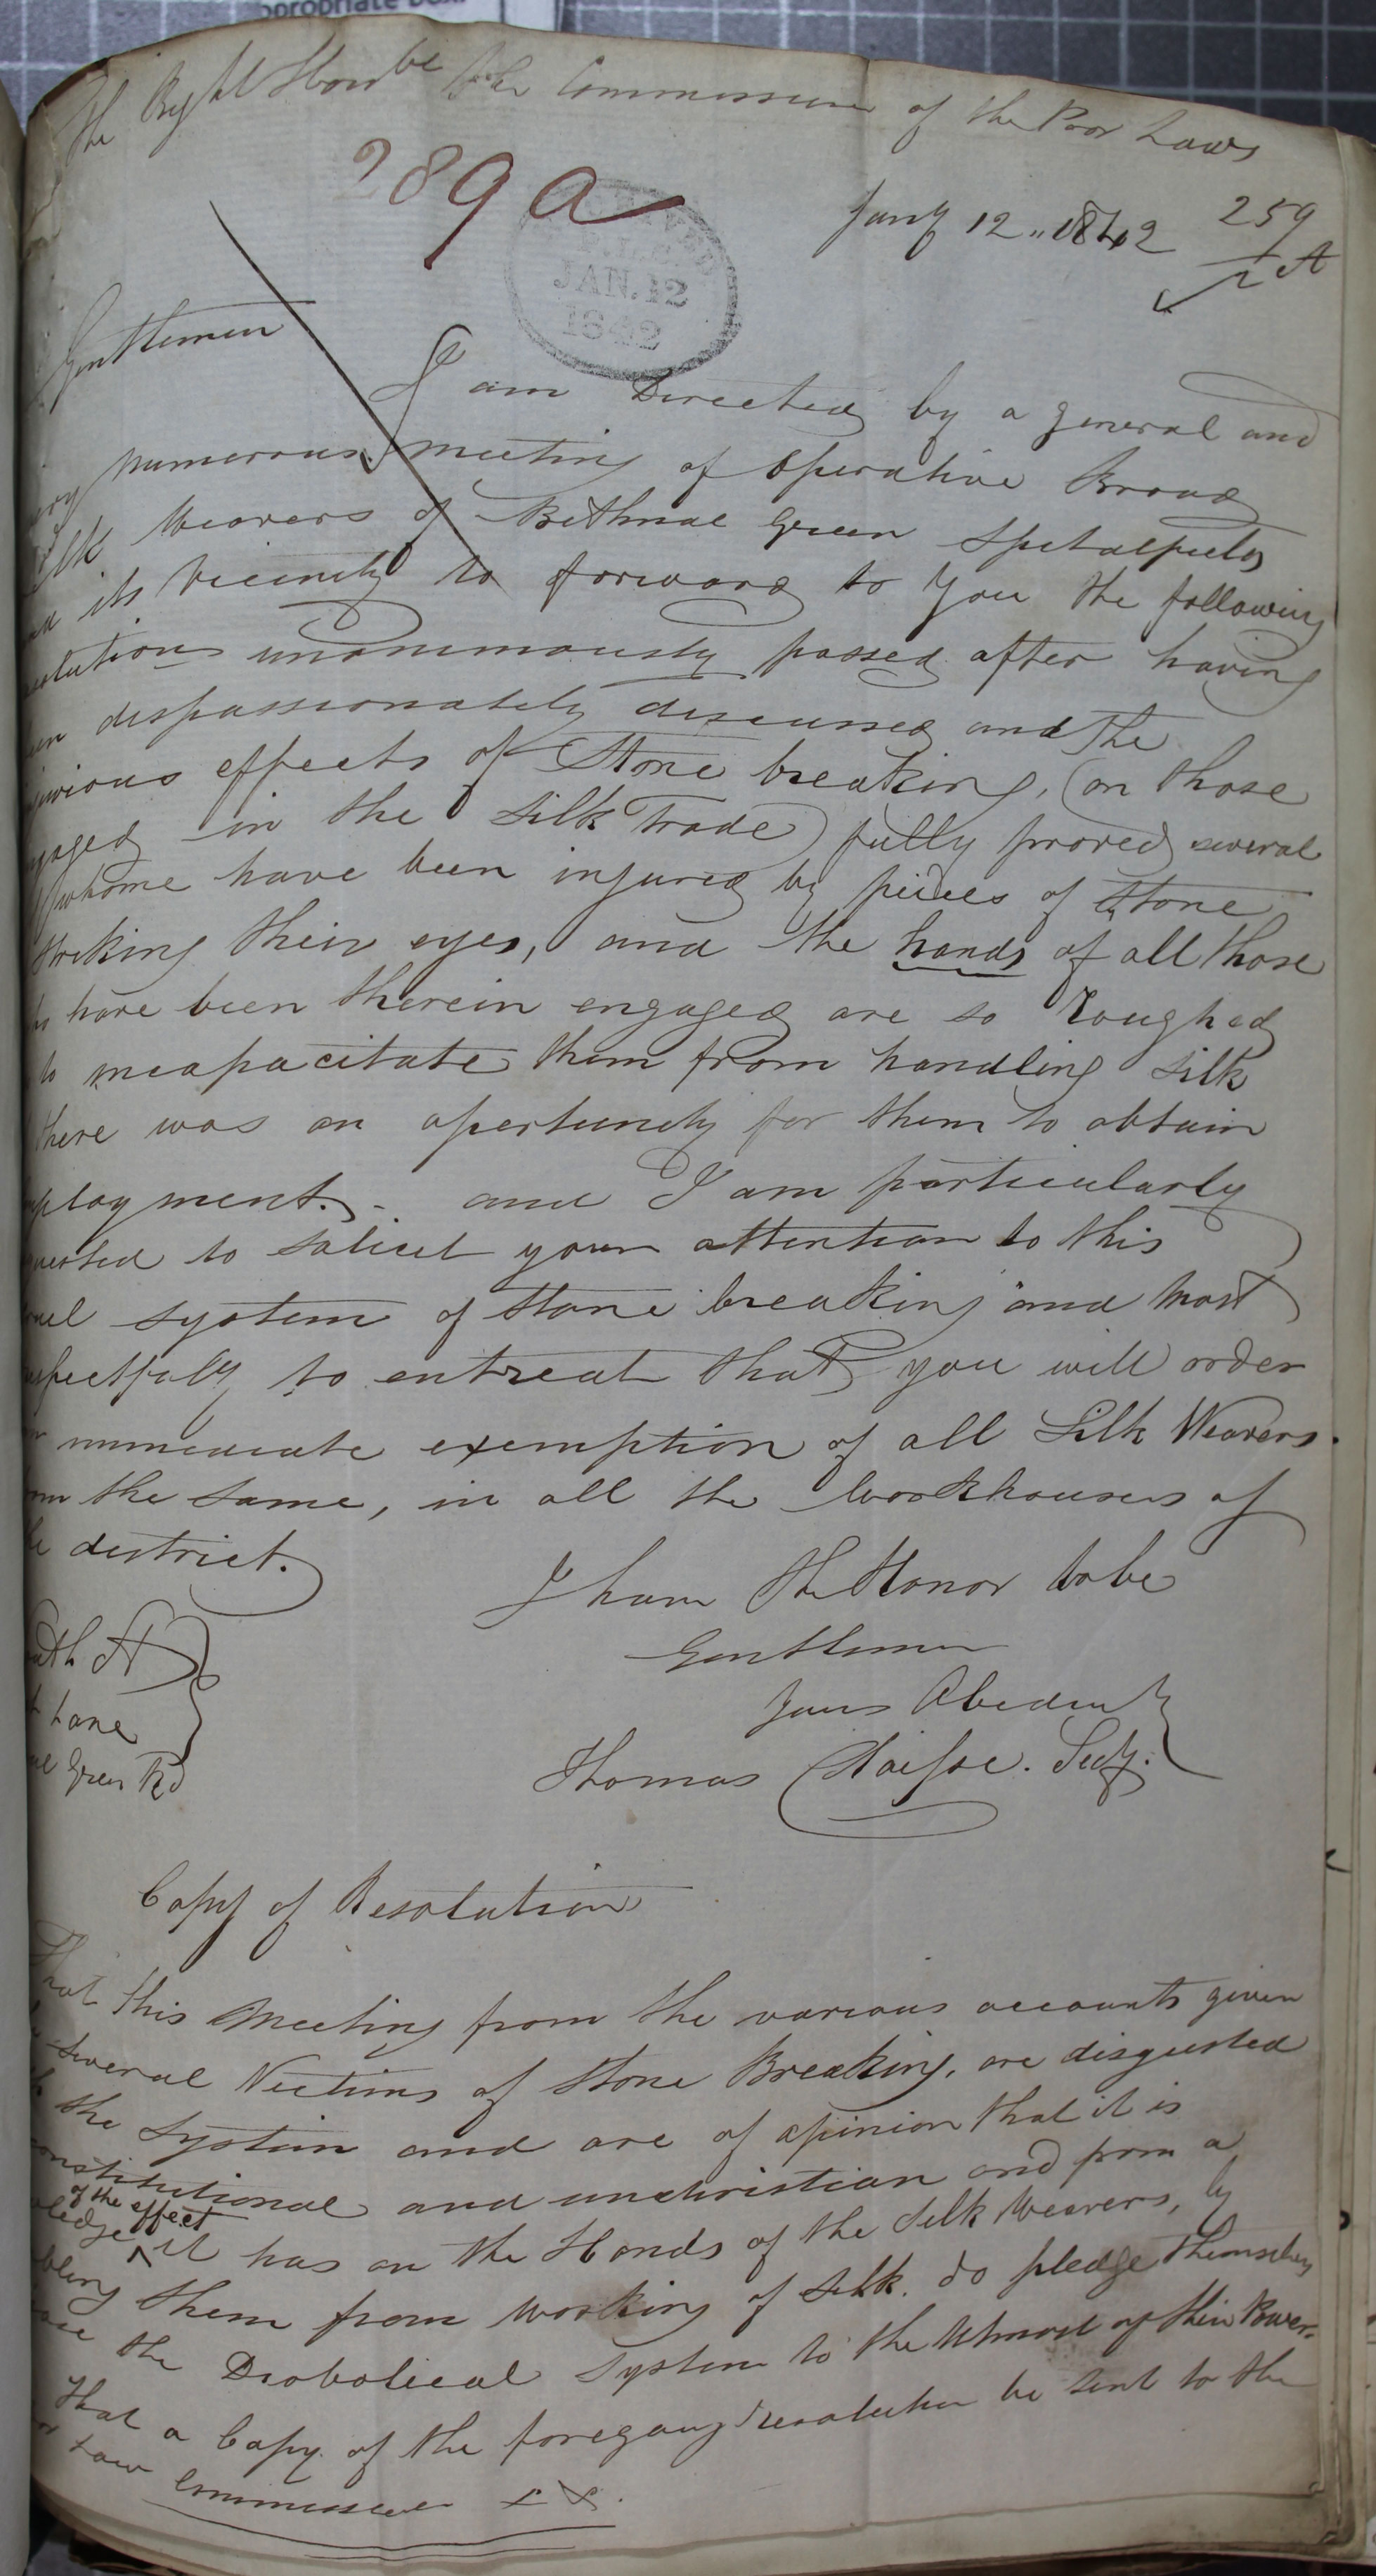 opropriate box.
The Right Honbe the Commissioners of the Poor Laws
289 a
Jany 12 "1842
259
A
JAN. 12
1842
Gentlemen
I am Directed by a general and
numerous meeting of Operative Broad
Weavers of Bethnal Green Spitalfields
its Vicinity to forward to you the following
unanimously passed after having
dispassionately discussed and the
effects of Stone breaking, (on those
in the Silk Trade) fully proved several
whome have been injured by peices of Stone
their eyes, and the hands of all those
have been therein engaged are so roughed
to incapacitate them from handling Silk
there was an opertunity for them to obtain
ployment. - and I am particularly
to solicit your attention to this
system of Stone breaking and most
to entreat that you will order
immediate exemption of all Silk Weavers.
the same, in all the workhouses of
district.
I have the Honor to be
Gentlemen
Yours Obedient
Thomas Secy.
Lane
Green Rd
Copy of Resolution
That this Meeting from the various accounts given
several Victims of Stone Breaking, are disgusted
the System and are of opinion that it is
onstitutional and unchristian and from a
of the effect
ledge ^ it has on the Hands of the Silk Weavers, by
bling them from working of silk. do pledge themselves
the Diabolical System to the Utmost of their Power.
That a Copy of the foregoing resolution be sent to the
Law Commissioners